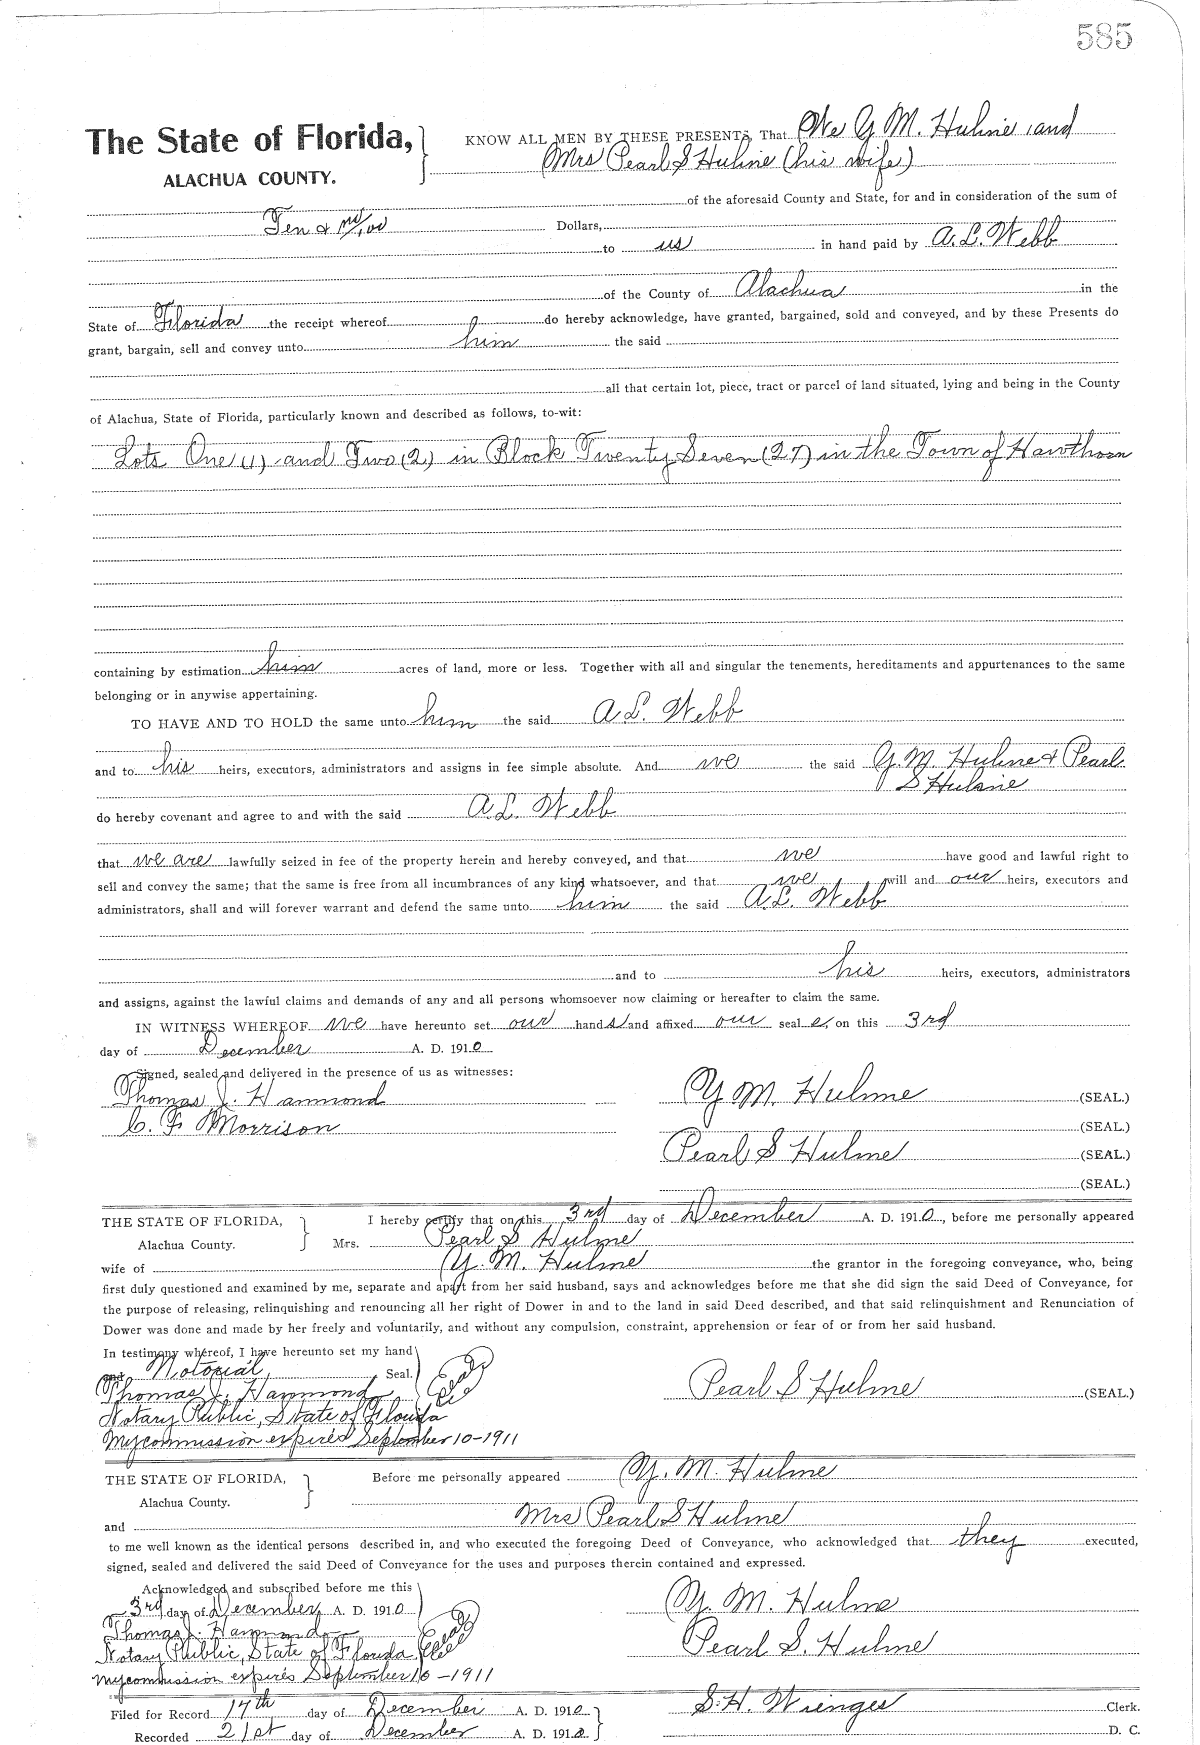 585
The State of Florida,
ALACHUA COUNTY.
KNOW ALL MEN BY THESE PRESENTS, That We Y M. Hulme and
Mrs Pearl S Hulme (his wife)
of the aforesaid County and State, for and in consideration of the sum of
Ten & no/00 Dollars,
to us in hand paid by A. L. Webb
of the County of Alachua in the
State of Florida the receipt whereof do hereby acknowledge, have granted, bargained, sold and conveyed, and by these Presents do
grant, bargain, sell and convey unto him the said
all that certain lot, piece, tract or parcel of land situated, lying and being in the County
of Alachua, State of Florida, particularly known and described as follows, to-wit:
Lots One (1) and Two (2) in Block Twenty Seven (27) in the Town of Hawthorn
containing by estimation him acres of land, more or less. Together with all and singular the tenements, hereditaments and appurtenances to the same
belonging or in anywise appertaining.
TO HAVE AND TO HOLD the same unto him the said A L. Webb
and to his heirs, executors, administrators and assigns in fee simple absolute. And we the said Y. M. Hulme & Pearl
S Hulme
do hereby covenant and agree to and with the said A L. Webb
that we are lawfully seized in fee of the property herein and hereby conveyed, and that we have good and lawful right to
sell and convey the same; that the same is free from all incumbrances of any kind whatsoever, and that we will and our heirs, executors and
administrators, shall and will forever warrant and defend the same unto him the said A. L. Webb
and to his heirs, executors, administrators
and assigns, against the lawful claims and demands of any and all persons whomsoever now claiming or hereafter to claim the same.
IN WITNESS WHEREOF we have hereunto set our hands and affixed our seal s, on this 3rd
day of December A. D. 1910
Signed, sealed and delivered in the presence of us as witnesses:
Thomas J. Hammond
C. F. Morrison
Y M. Hulme (SEAL.)
(SEAL.)
Pearl S Hulme (SEAL.)
(SEAL.)
THE STATE OF FLORIDA,
Alachua County.
I hereby certify that on this 3rd day of December A. D. 1910, before me personally appeared
Mrs. Pearl S Hulme
wife of Y. M. Hulme the grantor in the foregoing conveyance, who, being
first duly questioned and examined by me, separate and apart from her said husband, says and acknowledges before me that she did sign the said Deed of Conveyance, for
the purpose of releasing, relinquishing and renouncing all her right of Dower in and to the land in said Deed described, and that said relinquishment and Renunciation of
Dower was done and made by her freely and voluntarily, and without any compulsion, constraint, apprehension or fear of or from her said husband.
In testimony whereof, I have hereunto set my hand
and Notorial Seal.
Thomas J. Hammond
Notary Public, State of Florida
My commission expires September 10-1911
Pearl S Hulme (SEAL.)
THE STATE OF FLORIDA,
Alachua County.
Before me personally appeared Y. M. Hulme
and Mrs Pearl S Hulme
to me well known as the identical persons described in, and who executed the foregoing Deed of Conveyance, who acknowledged that they executed,
signed, sealed and delivered the said Deed of Conveyance for the uses and purposes therein contained and expressed.
Acknowledged and subscribed before me this
3rd day of December, A. D. 1910
Thomas J. Hammond
Notary Public, State of Florida
My commission expires September 10-1911
Y. M. Hulme
Pearl S. Hulme
Filed for Record 17th day of December A. D. 1910
Recorded 21st day of December A. D. 1910
S. H. Wienges Clerk.
D. C.